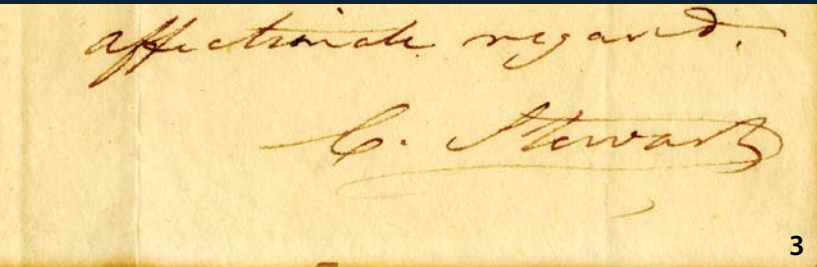 affectionate regard.
C. Stewart
3